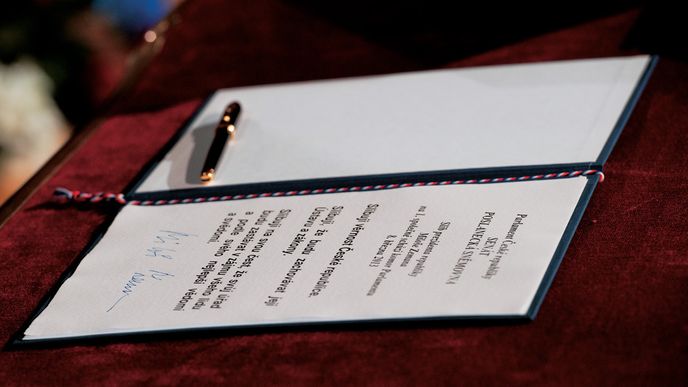 Parlament České republiky
SENÁT
POSLANECKÁ SNĚMOVNA
Slib prezidenta republiky
Miloše Zemana
na 1. společné schůzi komor Parlamentu
8. března 2013
Slibuji věrnost České republice.
Slibuji, že budu zachovávat její
Ústavu a zákony.
Slibuji na svou čest, že svůj úřad
budu zastávat v zájmu všeho lidu
a podle svého nejlepšího vědomí
a svědomí.